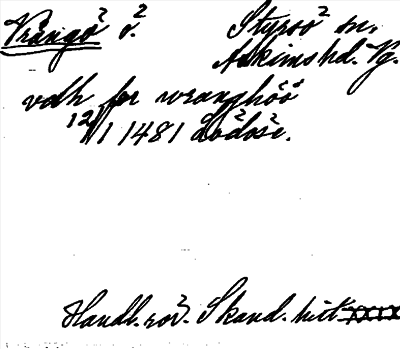 Vrångö ö. Styrsö sn.
Askims hd. Vg.
vdh for wranghöö
12/1 1481 Lödöse.
Handl. rör. Skand. hist. XXIX